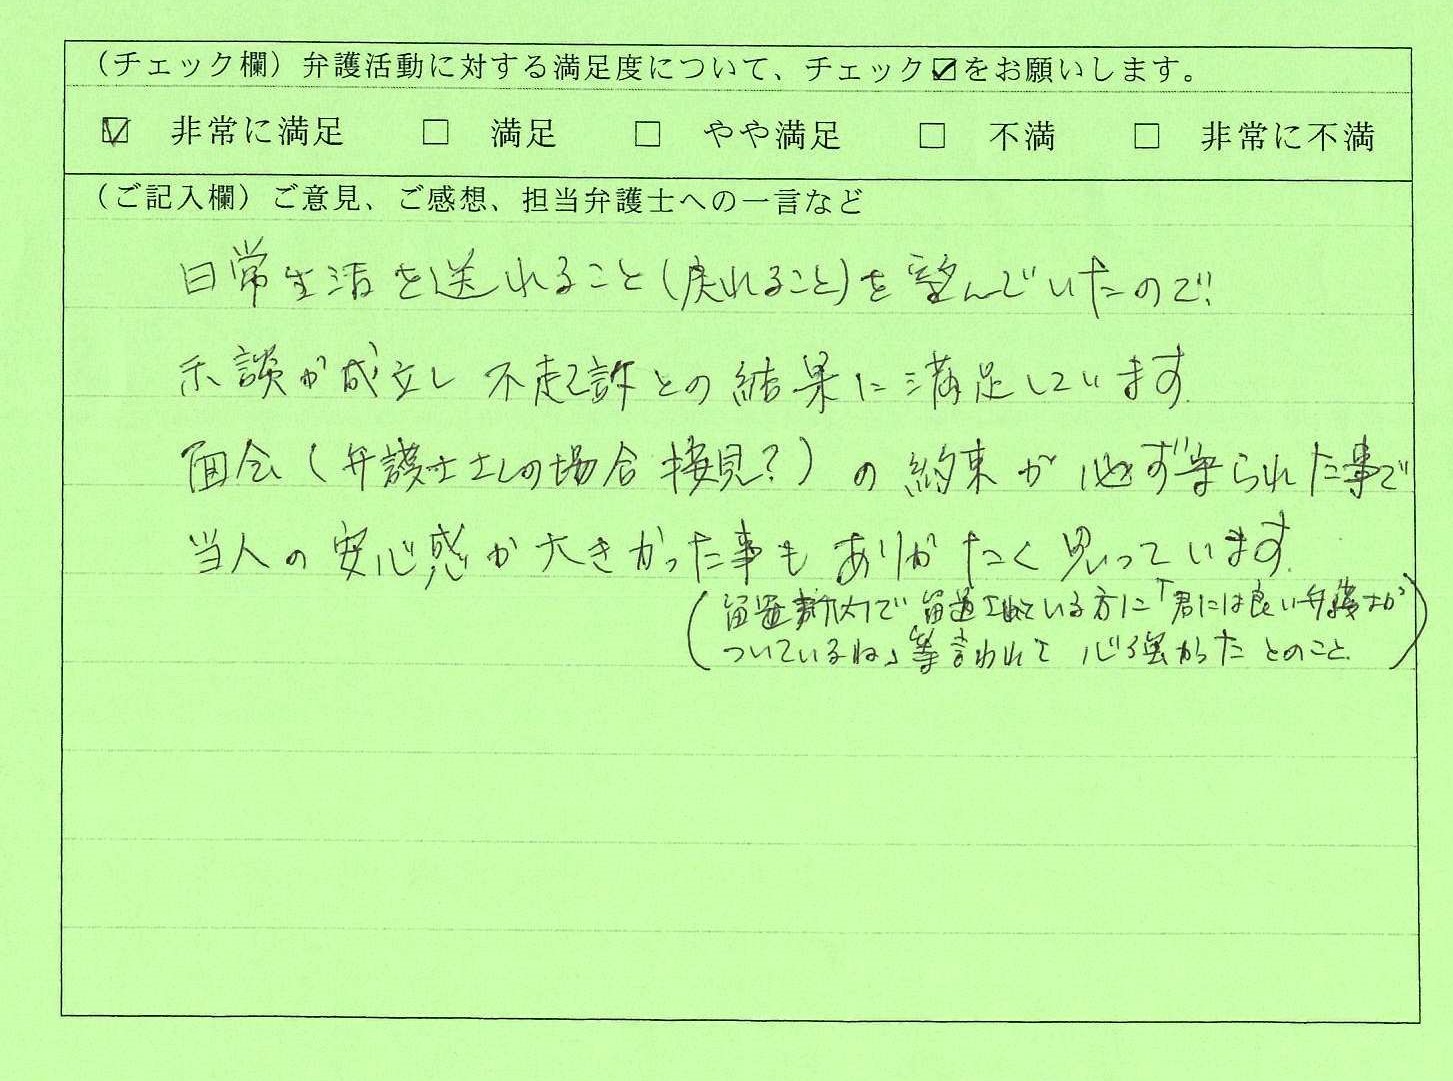 (チェック欄)弁護活動に対する満足度について、チェック☑をお願いします。
☑ 非常に満足 □ 満足 □ やや満足 □ 不満 □ 非常に不満
(ご記入欄)ご意見、ご感想、担当弁護士への一言など
日常生活を送れること(戻れること)を望んでいたので、
示談が成立し 不起訴との結果に満足しています。
面会(弁護士さんの場合接見?)の約束が必ず守られた事で
当人の安心感が大きかった事もありがたく思っています。
(留置所内で留置されている方に「君には良い弁護士が
ついているね」等言われて 心強かったとのこと。)